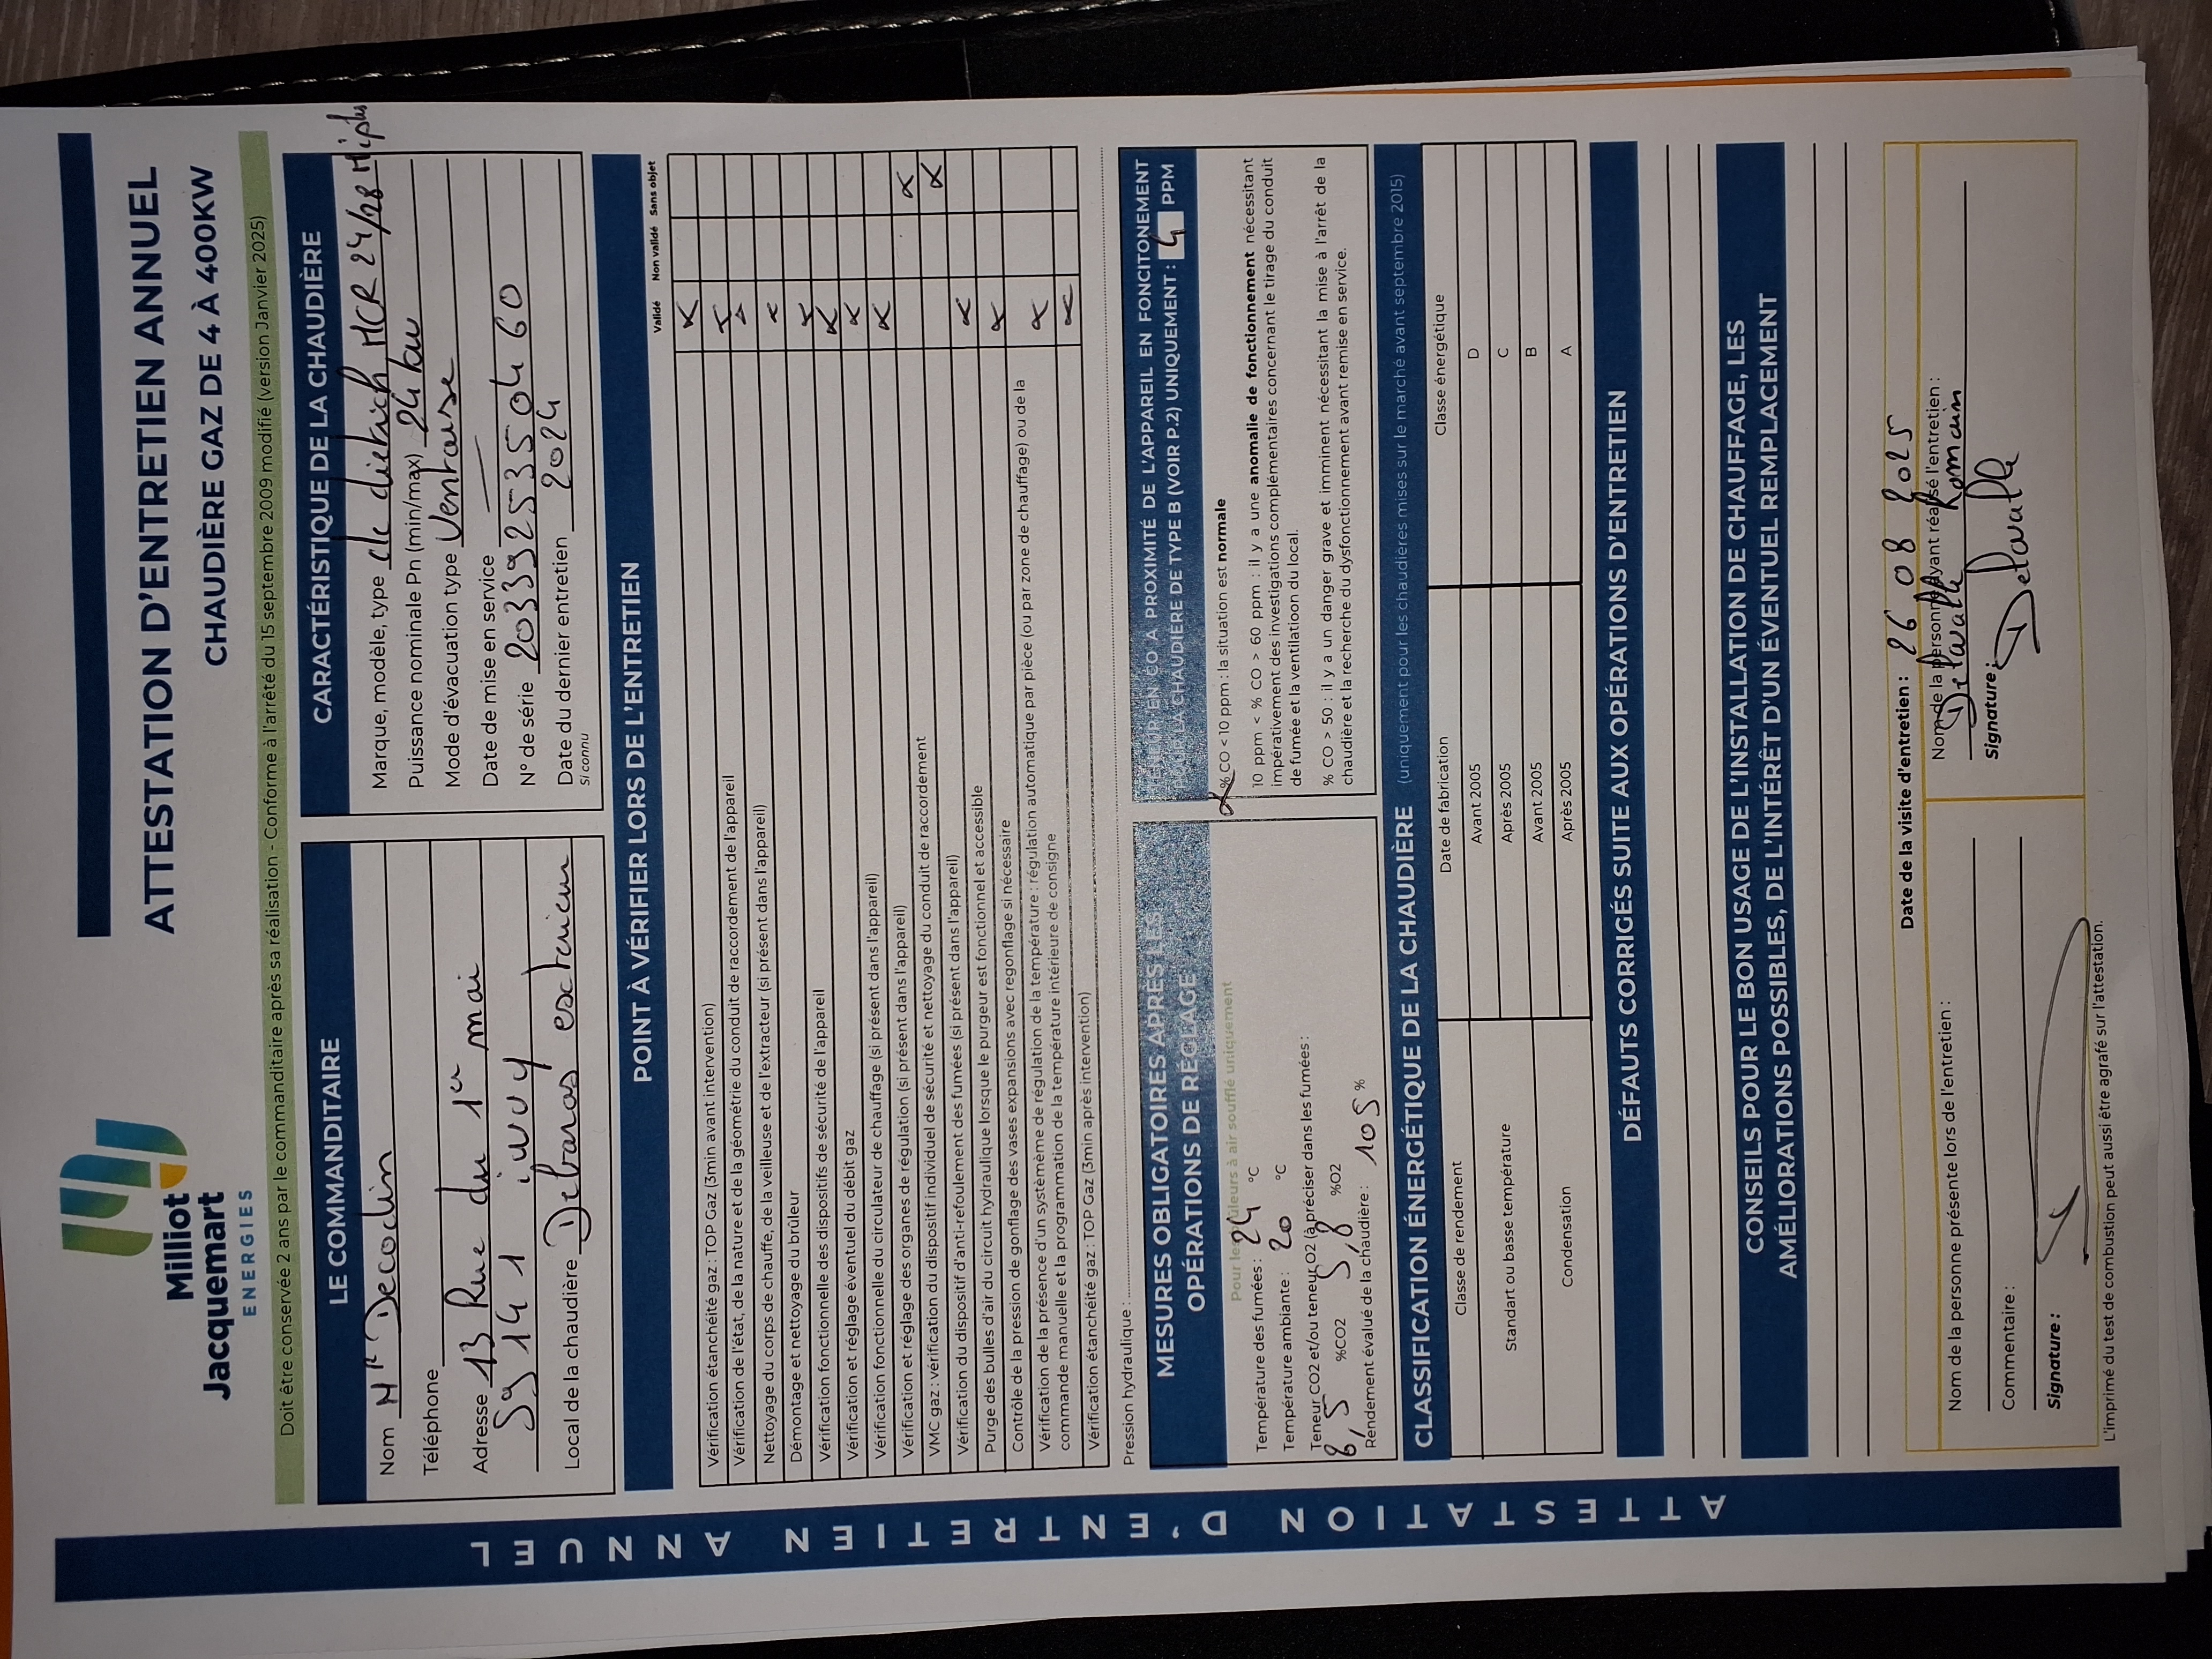 Milliot
Jacquemart
ENERGIES
ATTESTATION D'ENTRETIEN ANNUEL
CHAUDIÈRE GAZ DE 4 À 400KW
Doit être conservée 2 ans par le commanditaire après sa réalisation - Conforme à l'arrêté du 15 septembre 2009 modifié (version Janvier 2025)
LE COMMANDITAIRE
Nom Mr Decodin
Téléphone
Adresse 13 Rue du 1er mai
59141 iwuy
Local de la chaudière Debaras exterieur
CARACTÉRISTIQUE DE LA CHAUDIÈRE
Marque, modèle, type de dietrich MCR 24/28 Mi plus
Puissance nominale Pn (min/max) 24 kw
Mode d'évacuation type Ventouse
Date de mise en service —
N° de série 2033925350460
Date du dernier entretien 2024
Si connu
POINT À VÉRIFIER LORS DE L'ENTRETIEN
Validé Non validé Sans objet
Vérification étanchéité gaz : TOP Gaz (3min avant intervention) X
Vérification de l'état, de la nature et de la géométrie du conduit de raccordement de l'appareil X
Nettoyage du corps de chauffe, de la veilleuse et de l'extracteur (si présent dans l'appareil) X
Démontage et nettoyage du brûleur X
Vérification fonctionnelle des dispositifs de sécurité de l'appareil X
Vérification et réglage éventuel du débit gaz X
Vérification fonctionnelle du circulateur de chauffage (si présent dans l'appareil) X
Vérification et réglage des organes de régulation (si présent dans l'appareil) X
VMC gaz : vérification du dispositif individuel de sécurité et nettoyage du conduit de raccordement X
Vérification du dispositif d'anti-refoulement des fumées (si présent dans l'appareil) X
Purge des bulles d'air du circuit hydraulique lorsque le purgeur est fonctionnel et accessible X
Contrôle de la pression de gonflage des vases expansions avec regonflage si nécessaire
Vérification de la présence d'un systèmème de régulation de la température : régulation automatique par pièce (ou par zone de chauffage) ou de la
commande manuelle et la programmation de la température intérieure de consigne X
Vérification étanchéité gaz : TOP Gaz (3min après intervention) X
Pression hydraulique :
MESURES OBLIGATOIRES APRÈS LES
OPÉRATIONS DE RÉGLAGE
Pour les brûleurs à air soufflé uniquement
Température des fumées : 24 °C
Température ambiante : 20 °C
Teneur CO2 et/ou teneur O2 (à préciser dans les fumées :
8,5 %CO2 5,8 %O2
Rendement évalué de la chaudière : 105 %
TENEUR EN CO À PROXIMITÉ DE L'APPAREIL EN FONCITONEMENT
POUR LA CHAUDIÈRE DE TYPE B (VOIR P.2) UNIQUEMENT : 4 PPM
X % CO < 10 ppm : la situation est normale
10 ppm < % CO > 60 ppm : il y a une anomalie de fonctionnement nécessitant
impérativement des investigations complémentaires concernant le tirage du conduit
de fumée et la ventillatioon du local.
% CO > 50 : il y a un danger grave et imminent nécessitant la mise à l'arrêt de la
chaudière et la recherche du dysfonctionnement avant remise en service.
CLASSIFICATION ÉNERGÉTIQUE DE LA CHAUDIÈRE (uniquement pour les chaudières mises sur le marché avant septembre 2015)
Classe de rendement Date de fabrication Classe énergétique
Standart ou basse température Avant 2005 D
Après 2005 C
Condensation Avant 2005 B
Après 2005 A
DÉFAUTS CORRIGÉS SUITE AUX OPÉRATIONS D'ENTRETIEN
CONSEILS POUR LE BON USAGE DE L'INSTALLATION DE CHAUFFAGE, LES
AMÉLIORATIONS POSSIBLES, DE L'INTÉRÊT D'UN ÉVENTUEL REMPLACEMENT
Date de la visite d'entretien : 26 08 2025
Nom de la personne présente lors de l'entretien :
Commentaire :
Signature :
Nom de la personne ayant réalisé l'entretien :
Delavalle Romain
Signature : Delavalle
L'imprimé du test de combustion peut aussi être agrafé sur l'attestation.
ATTESTATION D'ENTRETIEN ANNUEL